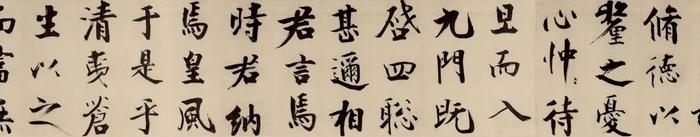 脩德以
釐之憂
心忡〻待
旦而入
九門既
啓四聡
甚邇相
君言焉
時君納
焉皇風
于是乎
清夷蒼
生以之
而富